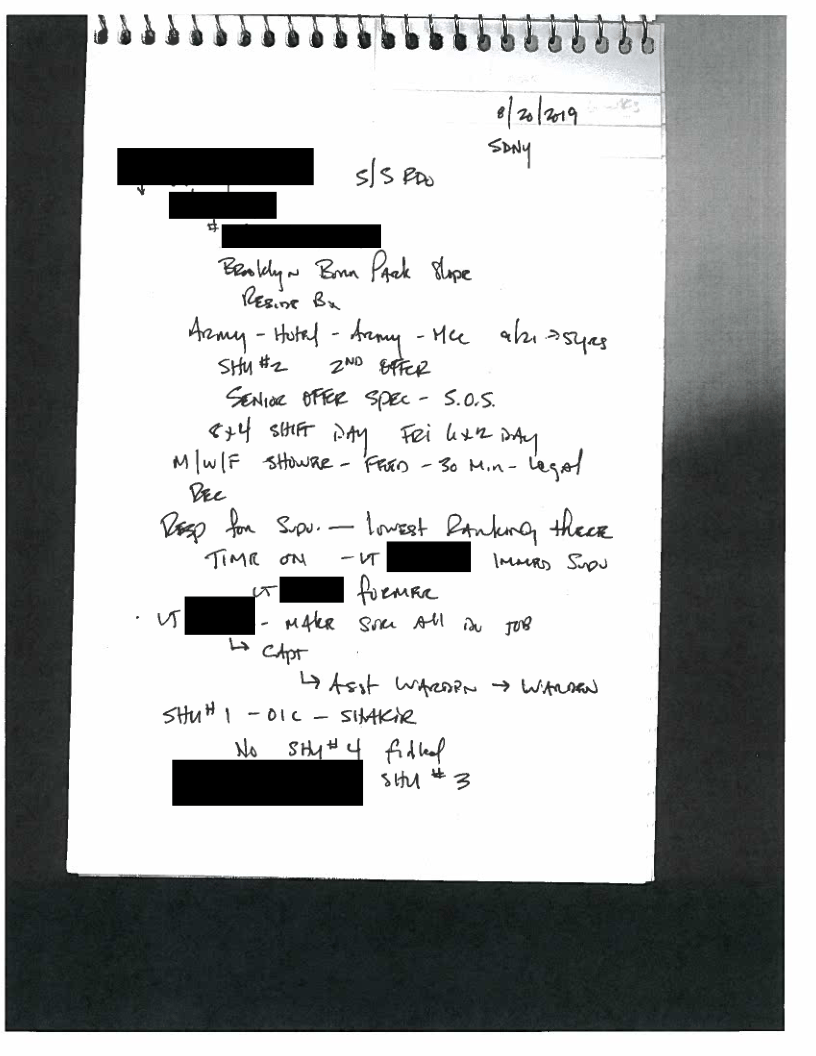 8/20/2019
SDNY
S/S RDO
#
Brooklyn Born Park Slope
Reside Bx
Army - Hotel - Army - MCC 9/21 → 5yrs
SHU #2 2ND OFFCR
SENIOR OFFCR SPEC - S.O.S.
8x4 SHIFT DAY FRI 6x2 DAY
M/W/F SHOWER - FEED - 30 Min - Legal
Rec
Resp for Supv. — lowest Ranking there
TIME ON - LT IMMED Supv
LT FORMER
· LT - MAKE SURE All DO JOB
↳ CAPT
↳ Asst WARDEN → WARDEN
SHU # 1 - OIC - SHAKIR
No SHU # 4
SHU # 3